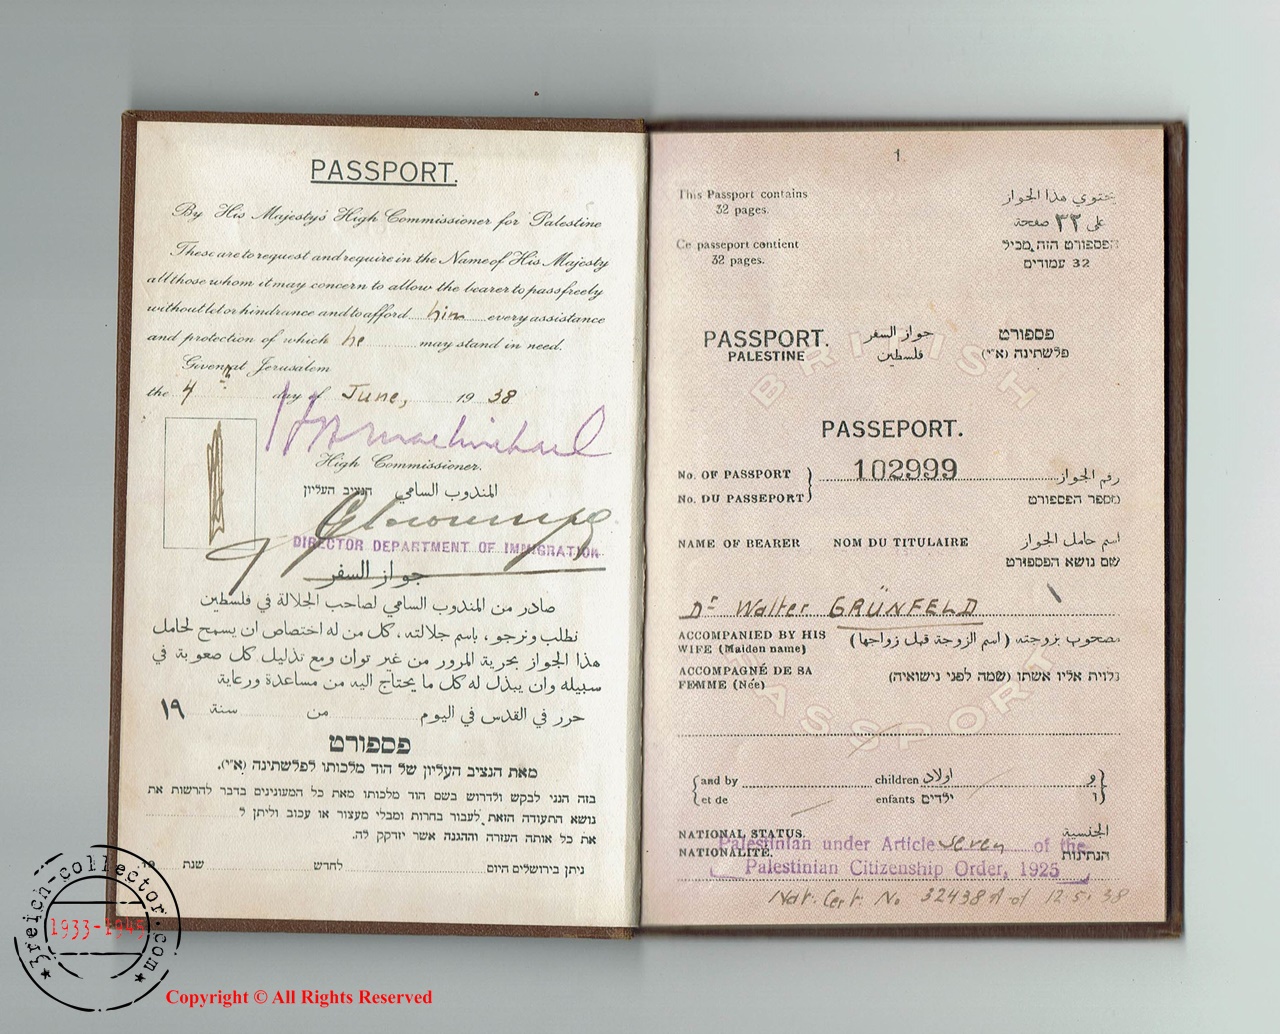 PASSPORT.
By His Majesty's High Commissioner for Palestine
These are to request and require in the Name of His Majesty
all those whom it may concern to allow the bearer to pass freely
without let or hindrance and to afford him every assistance
and protection of which he may stand in need.
Given at Jerusalem
the 4th day of June, 19 38
High Commissioner.
הנציב העליון المندوب السامي
DIRECTOR DEPARTMENT OF IMMIGRATION
جواز السفر
صادر من المندوب السامي لصاحب الجلالة في فلسطين
نطلب ونرجو، باسم جلالته، كل من له اختصاص ان يسمح لحامل
هذا الجواز بحرية المرور من غير توان ومع تذليل كل صعوبة في
سبيله وان يبذل له كل ما يحتاج اليه من مساعدة ورعاية
حرر في القدس في اليوم من سنة ١٩
פספורט
מאת הנציב העליון של הוד מלכותו לפלשתינה (א״י).
בזה הנני לבקש ולדרוש בשם הוד מלכותו מאת כל המעונינים בדבר להרשות את
נושא התעודה הזאת לעבור בחרות ומבלי מעצור או עכוב וליתן ל
את כל אותה העזרה וההגנה אשר יזדקק לה.
ניתן בירושלים היום לחדש שנת 19
1.
This Passport contains
32 pages.
يحتوي هذا الجواز
على ٣٢ صفحة
Ce passeport contient
32 pages.
הפספורט הזה מכיל
32 עמודים
PASSPORT. جواز السفر פספורט
PALESTINE فلسطين פלשתינה (א״י)
BRITISH
PASSEPORT.
No. OF PASSPORT 102999 رقم الجواز
No. DU PASSEPORT מספר הפספורט
NAME OF BEARER NOM DU TITULAIRE اسم حامل الجواز
שם נושא הפספורט
Dr Walter GRÜNFELD
ACCOMPANIED BY HIS
WIFE (Maiden name)
مصحوب بزوجته (اسم الزوجة قبل زواجها)
ACCOMPAGNÉ DE SA
FEMME (Née)
נלוית אליו אשתו (שמה לפני נישואיה)
PASSPORT
and by children اولاد و
et de enfants ילדים ו
NATIONAL STATUS. الجنسية
NATIONALITÉ. הנתינות
Palestinian under Article seven of the
Palestinian Citizenship Order, 1925
Nat. Cert. No 32438A of 12.5.38
3reich-collector.com
1933-1945
Copyright © All Rights Reserved